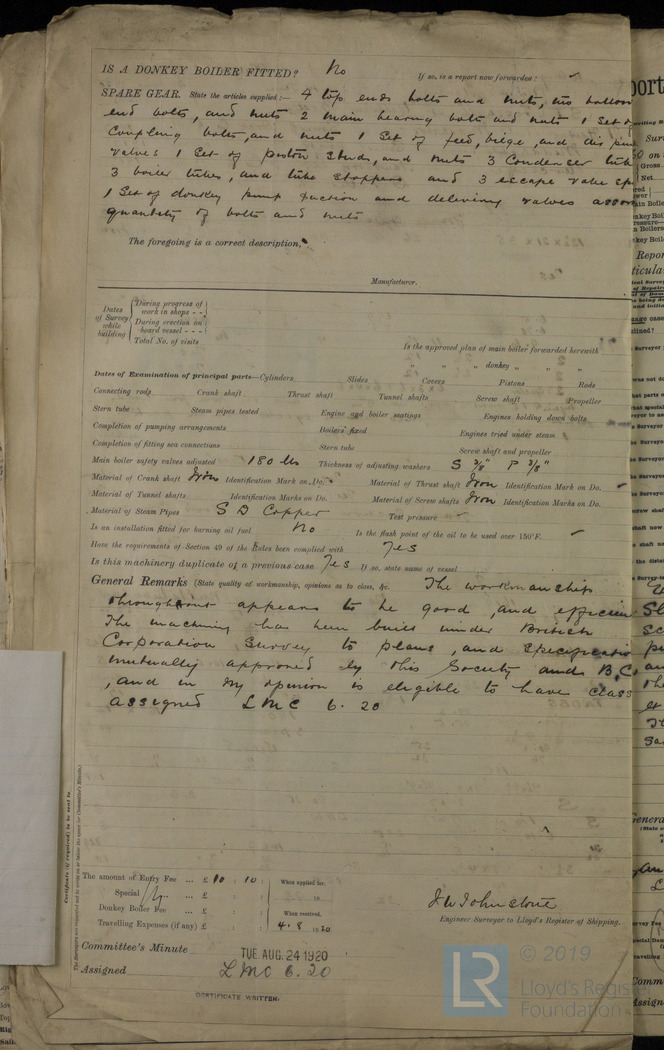 IS A DONKEY BOILER FITTED? No If so, is a report now forwarded?
SPARE GEAR. State the articles supplied:— 4 top ends bolts and nuts, two bottom
end bolts, and nuts 2 main bearing bolts and nuts 1 set of
Coupling bolts, and nuts 1 Set of feed, bilge, and air pump
valves 1 Set of piston studs, and nuts 3 Condenser tubes
3 boiler tubes, and tube stoppers and 3 escape valve
1 Set of donkey pump suction and delivery valves
quantity of bolts and nuts
The foregoing is a correct description,
Manufacturer.
Dates of Survey while building
During progress of work in shops - -
During erection on board vessel - - -
Total No. of visits
Is the approved plan of main boiler forwarded herewith
" " " donkey " " "
Dates of Examination of principal parts—Cylinders Slides Covers Pistons Rods
Connecting rods Crank shaft Thrust shaft Tunnel shafts Screw shaft Propeller
Stern tube Steam pipes tested Engine and boiler seatings Engines holding down bolts
Completion of pumping arrangements Boilers fixed Engines tried under steam
Completion of fitting sea connections Stern tube Screw shaft and propeller
Main boiler safety valves adjusted 180 lbs Thickness of adjusting washers S 3/8" P 3/8"
Material of Crank shaft Iron Identification Mark on Do. Material of Thrust shaft Iron Identification Mark on Do.
Material of Tunnel shafts Identification Marks on Do. Material of Screw shafts Iron Identification Marks on Do.
Material of Steam Pipes S D Copper Test pressure
Is an installation fitted for burning oil fuel No Is the flash point of the oil to be used over 150°F.
Have the requirements of Section 49 of the Rules been complied with Yes
Is this machinery duplicate of a previous case Yes If so, state name of vessel
General Remarks (State quality of workmanship, opinions as to class, &c. The workmanship
throughout appears to be good, and efficient
The machinery has been built under British
Corporation Survey to plans, and specification
mutually approved by this Society and B.C.
, and in my opinion is eligible to have class
assigned LMC 6. 20
Certificate (if required) to be sent to
The Surveyors are requested not to write on or below the space for Committee's Minute.
The amount of Entry Fee ... £ 10 : 10 : When applied for,
Special ... £ : : 19
Donkey Boiler Fee ... £ : : When received,
Travelling Expenses (if any) £ : : 4.8 1920
J W Johnstone
Engineer Surveyor to Lloyd's Register of Shipping.
Committee's Minute TUE. AUG. 24 1920
Assigned LMC 6. 20
CERTIFICATE WRITTEN.
© 2019
LR Lloyd's Register
Foundation